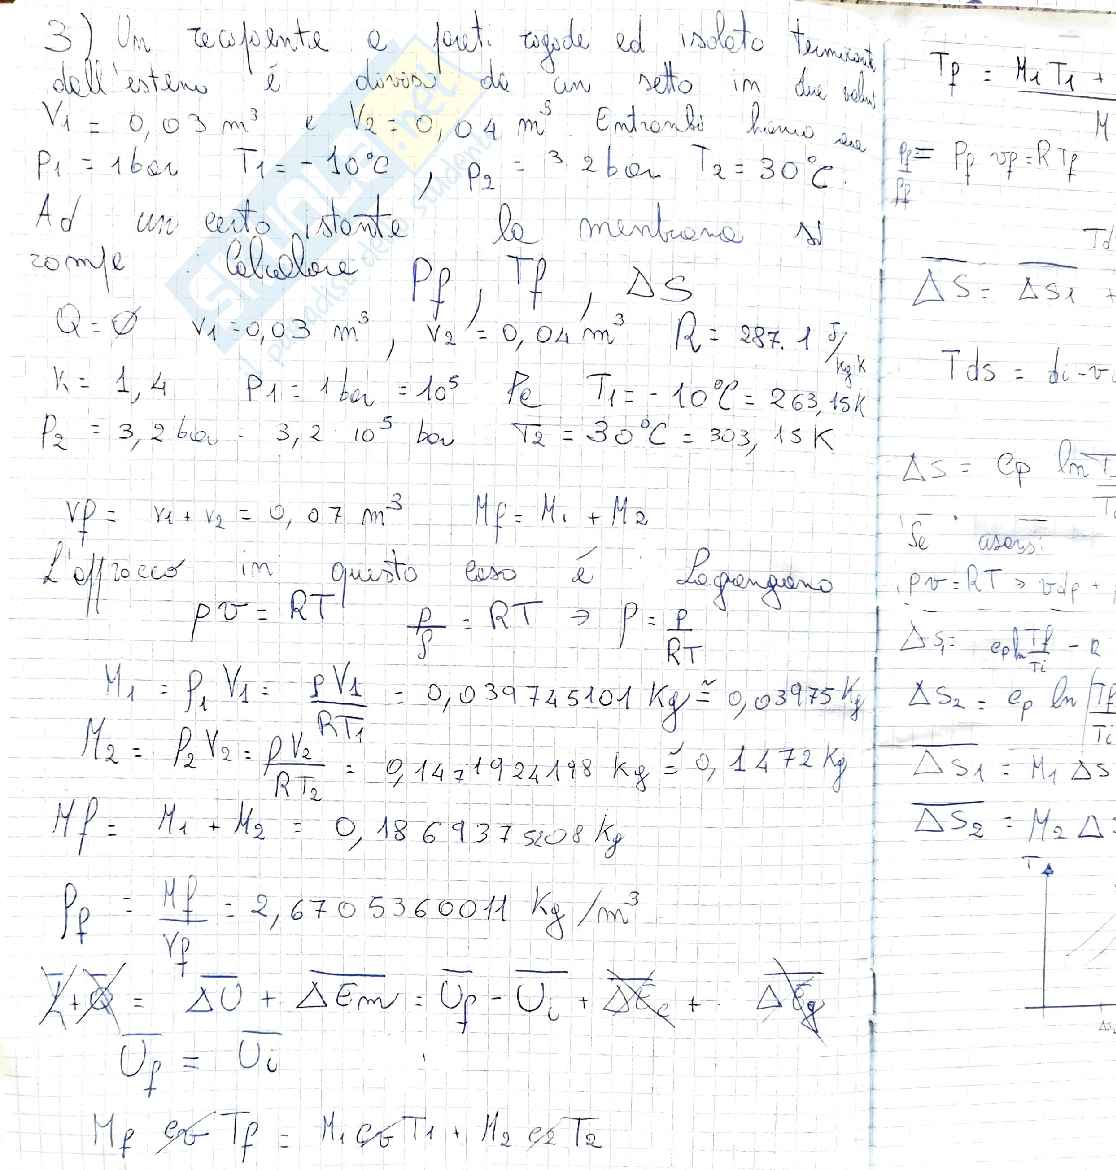 3) Un recipiente a pareti rigide ed isolato termicamente
dall'esterno é diviso da un setto in due volumi
V1 = 0,03 m³ e V2 = 0,04 m³. Entrambi hanno aria
P1 = 1 bar T1 = - 10°C , P2 = 3,2 bar T2 = 30°C.
Ad un certo istante la membrana si
rompe. Calcolare Pf , Tf , ΔS
Q = Ø V1 = 0,03 m³ , V2 = 0,04 m³ R = 287.1 J/kg K
K = 1,4 P1 = 1 bar = 10⁵ Pa T1 = - 10°C = 263,15K
P2 = 3,2 bar = 3,2 10⁵ bar T2 = 30°C = 303,15K
Vf = V1 + V2 = 0,07 m³ Mf = M1 + M2
L'approccio in questo caso é Lagrangiano
pv = RT p/ρ = RT ⇒ ρ = p/RT
M1 = ρ1 V1 = pV1/RT1 = 0,039745101 Kg ≅ 0,03975 Kg
M2 = ρ2 V2 = pV2/RT2 = 0,1471924198 Kg ≅ 0,1472 Kg
Mf = M1 + M2 = 0,1869375208 Kg
ρf = Mf/Vf = 2,6705360011 Kg/m³
L + Q = ΔU + ΔEm = Uf - Ui + ΔEc + ΔEg
Uf = Ui
Mf cv Tf = M1 cv T1 + M2 cv T2
Tf = M1 T1 +
M
Pf vf = R Tf
Td
ΔS = ΔS1 +
Tds = di - v
ΔS = cp ln T
Se
pv = RT ⇒ vdp +
ΔS1 = cp ln Tf/Ti - R
ΔS2 = cp ln Tf/Ti
ΔS1 = M1 ΔS
ΔS2 = M2 Δ
T